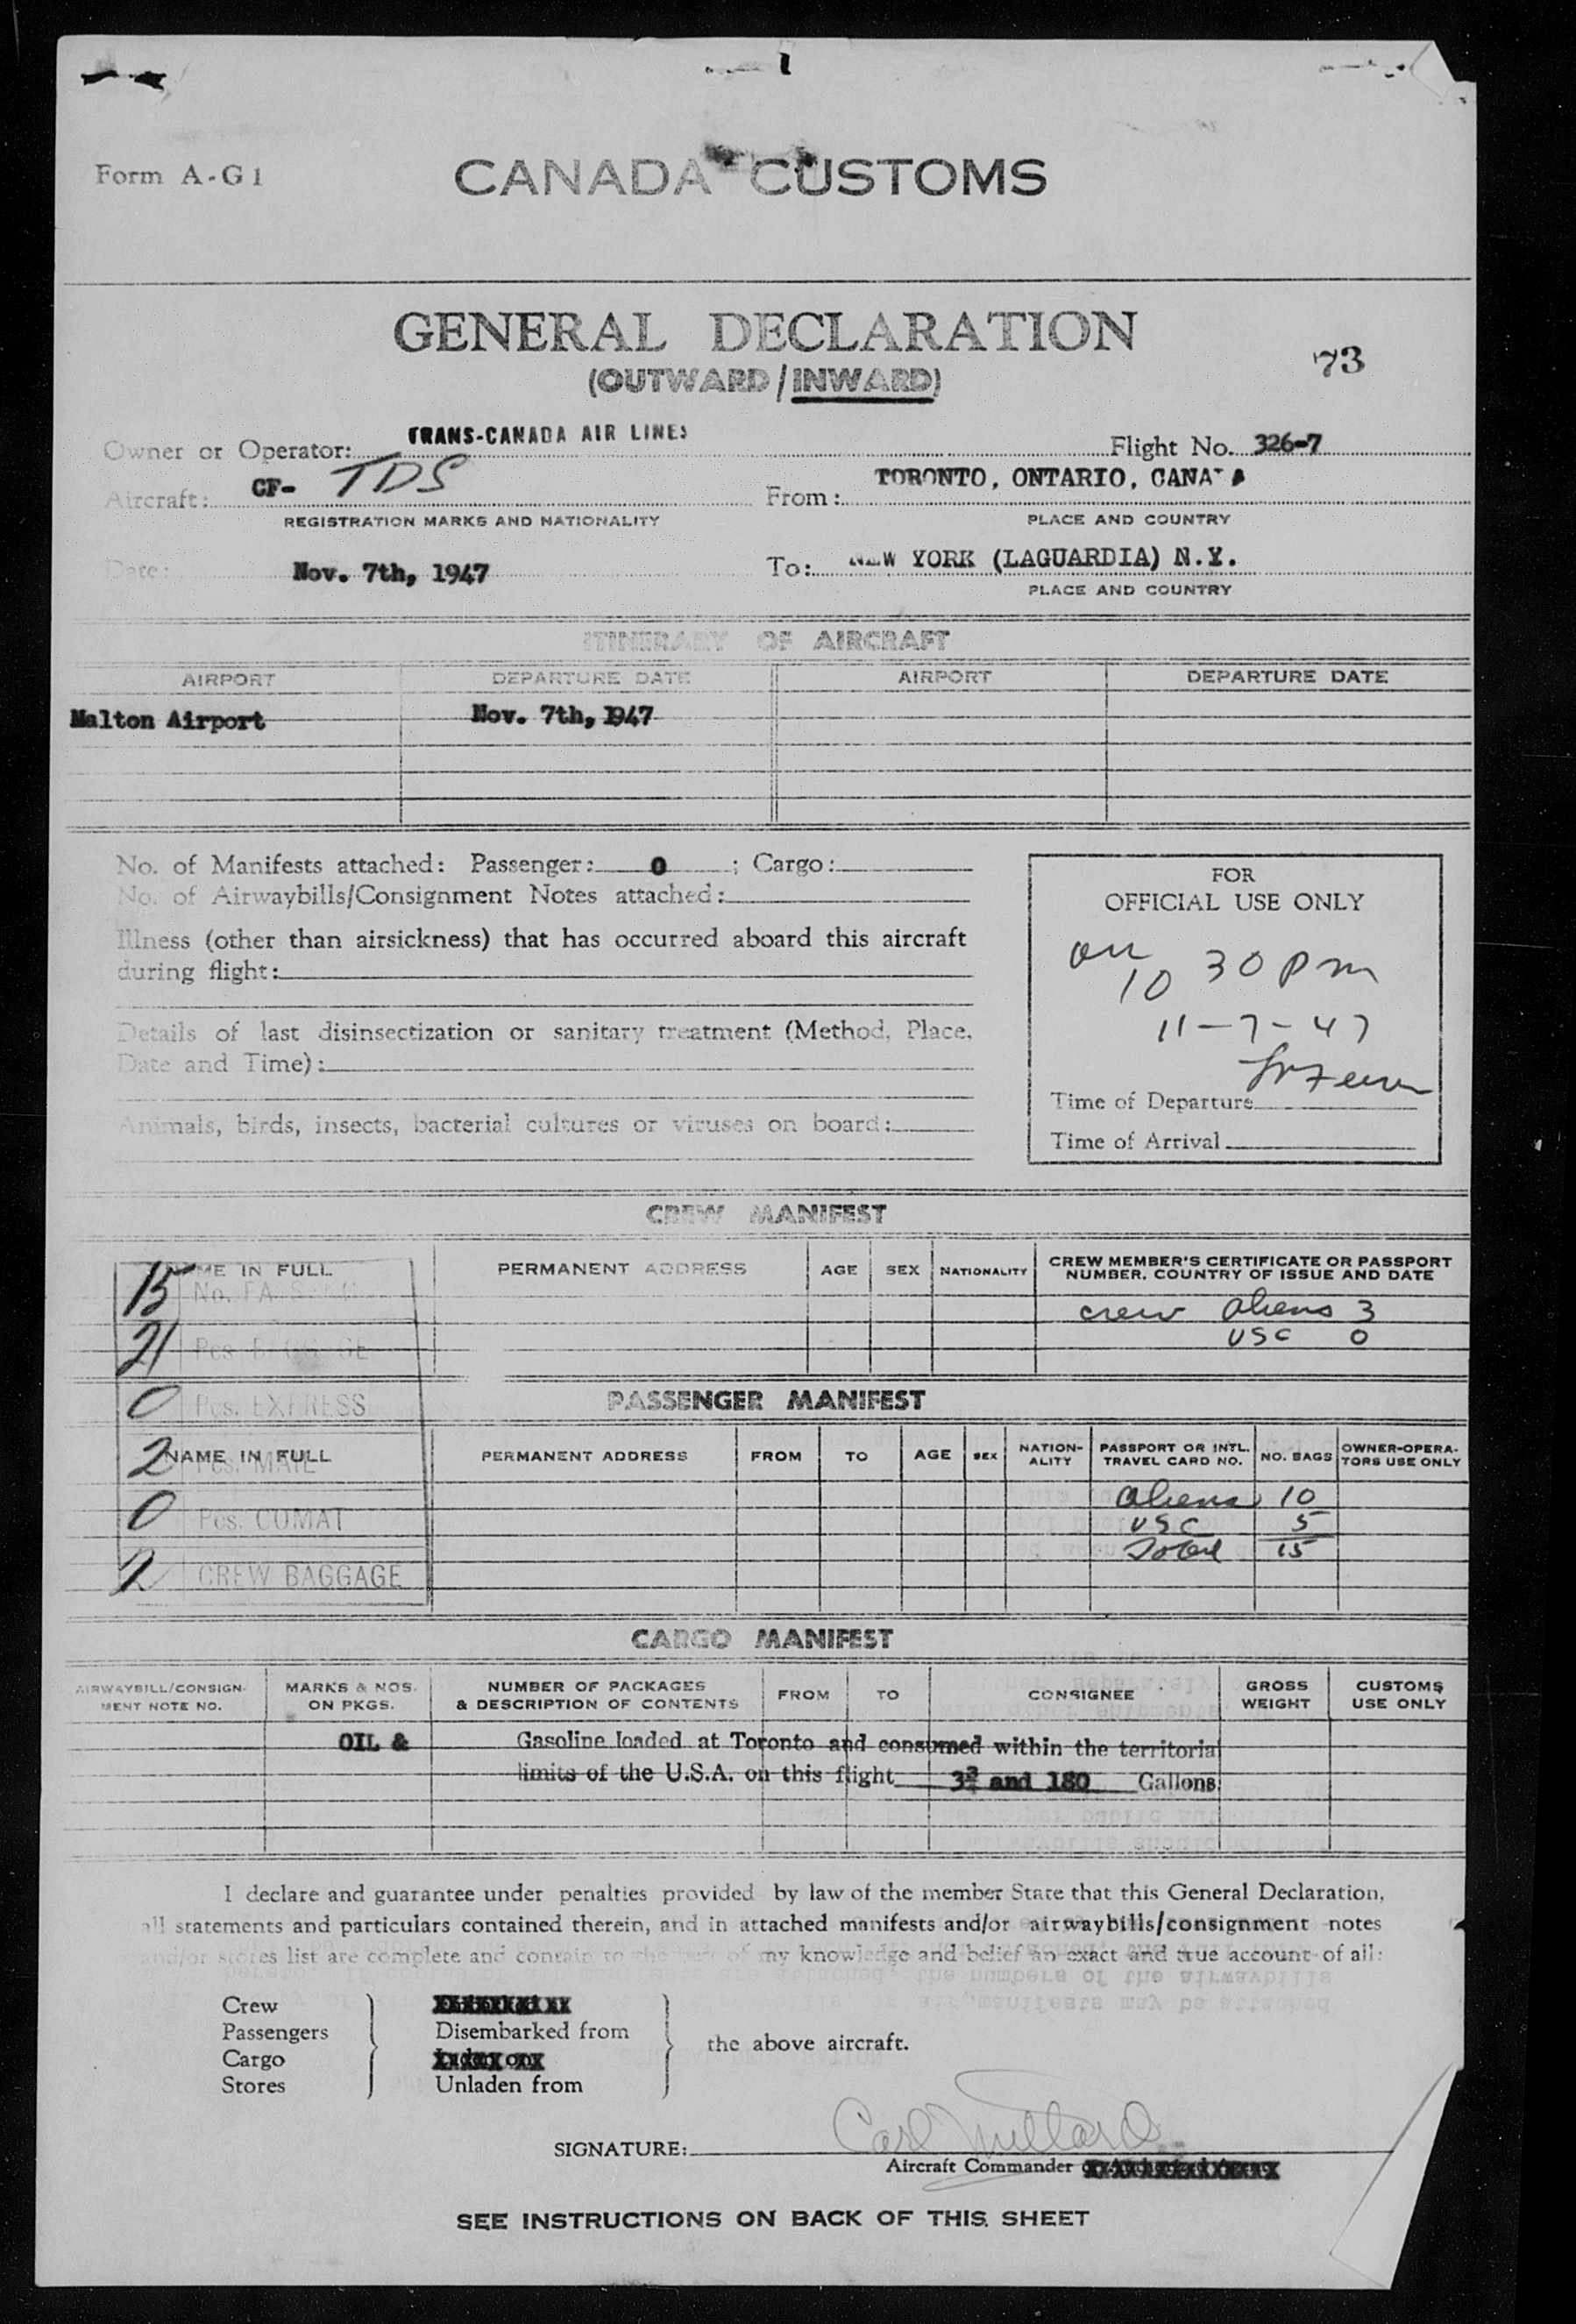 Form A-G1
CANADA CUSTOMS
GENERAL DECLARATION
(OUTWARD/INWARD)
73
Owner or Operator: TRANS-CANADA AIR LINES
Flight No. 326-7
Aircraft: CF- TDS
From: TORONTO, ONTARIO, CANADA
REGISTRATION MARKS AND NATIONALITY
PLACE AND COUNTRY
Date: Nov. 7th, 1947
To: NEW YORK (LAGUARDIA) N.Y.
PLACE AND COUNTRY
ITINERARY OF AIRCRAFT
AIRPORT DEPARTURE DATE AIRPORT DEPARTURE DATE
Malton Airport Nov. 7th, 1947
No. of Manifests attached: Passenger: 0 ; Cargo:
No. of Airwaybills/Consignment Notes attached:
Illness (other than airsickness) that has occurred aboard this aircraft
during flight:
Details of last disinsectization or sanitary treatment (Method, Place,
Date and Time):
Animals, birds, insects, bacterial cultures or viruses on board:
FOR
OFFICIAL USE ONLY
10 30 pm
11-7-47
Time of Departure
Time of Arrival
CREW MANIFEST
NAME IN FULL PERMANENT ADDRESS AGE SEX NATIONALITY CREW MEMBER'S CERTIFICATE OR PASSPORT
NUMBER, COUNTRY OF ISSUE AND DATE
15 No.
crew aliens 3
21 Pcs.
USC 0
PASSENGER MANIFEST
0 Pcs. EXPRESS
NAME IN FULL PERMANENT ADDRESS FROM TO AGE SEX NATION-
ALITY PASSPORT OR INTL.
TRAVEL CARD NO. NO. BAGS OWNER-OPERA-
TORS USE ONLY
2 Pcs. MAIL
aliens 10
0 Pcs. COMAT
USC 5
Total 15
2 CREW BAGGAGE
CARGO MANIFEST
AIRWAYBILL/CONSIGN-
MENT NOTE NO. MARKS & NOS.
ON PKGS. NUMBER OF PACKAGES
& DESCRIPTION OF CONTENTS FROM TO CONSIGNEE GROSS
WEIGHT CUSTOMS
USE ONLY
OIL & Gasoline loaded at Toronto and consumed within the territorial
limits of the U.S.A. on this flight 3¾ and 180 Gallons
I declare and guarantee under penalties provided by law of the member State that this General Declaration,
all statements and particulars contained therein, and in attached manifests and/or airwaybills/consignment notes
and/or stores list are complete and contain to the best of my knowledge and belief an exact and true account of all:
Crew
Passengers Disembarked from
the above aircraft.
Cargo
Stores Unladen from
SIGNATURE: Carl Millard
Aircraft Commander
SEE INSTRUCTIONS ON BACK OF THIS SHEET